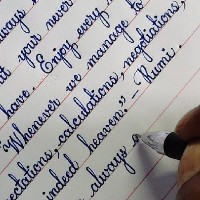 always
that your never
have. Enjoy every
"Whenever we manage to
expectations, calculations, negotiations,
indeed heaven." - Rumi.
always